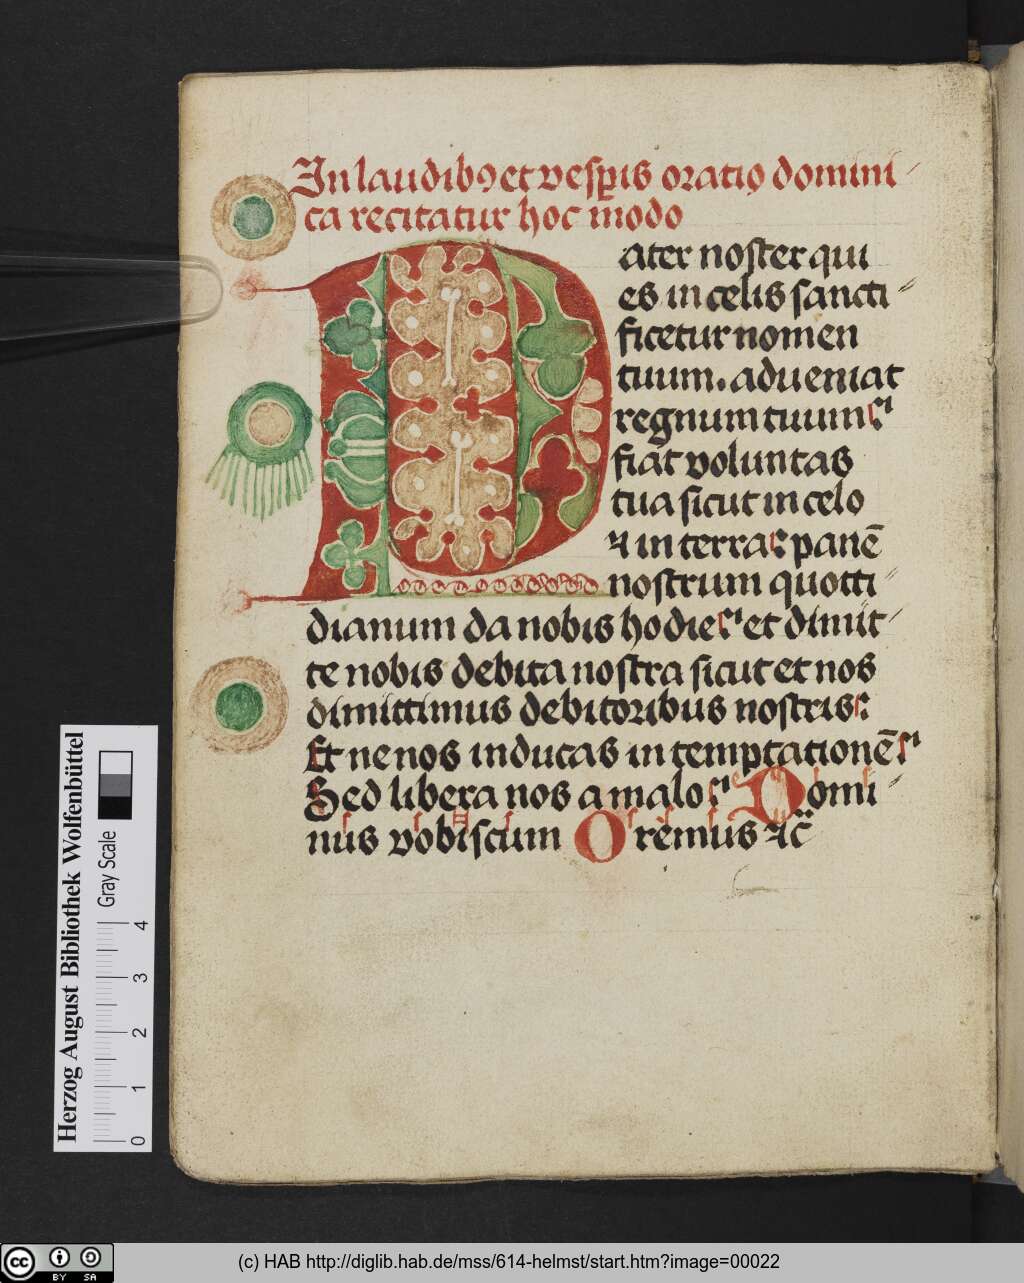 In laudibꝯ et vesꝑis oratio domini
ca recitatur hoc modo
Pater noster qui
es in celis sancti
ficetur nomen
tuum. adueniat
regnum tuum
fiat voluntas
tua sicut in celo
⁊ in terra panē
nostrum quotti
dianum da nobis hodie et dimit
te nobis debita nostra sicut et nos
dimittimus debitoribus nostris
Et ne nos inducas in temptationē
Sed libera nos a malo Domi
nus vobiscum Oremus ⁊c̄
Herzog August Bibliothek Wolfenbüttel
Gray Scale
0 1 2 3 4
cc BY SA
(c) HAB http://diglib.hab.de/mss/614-helmst/start.htm?image=00022